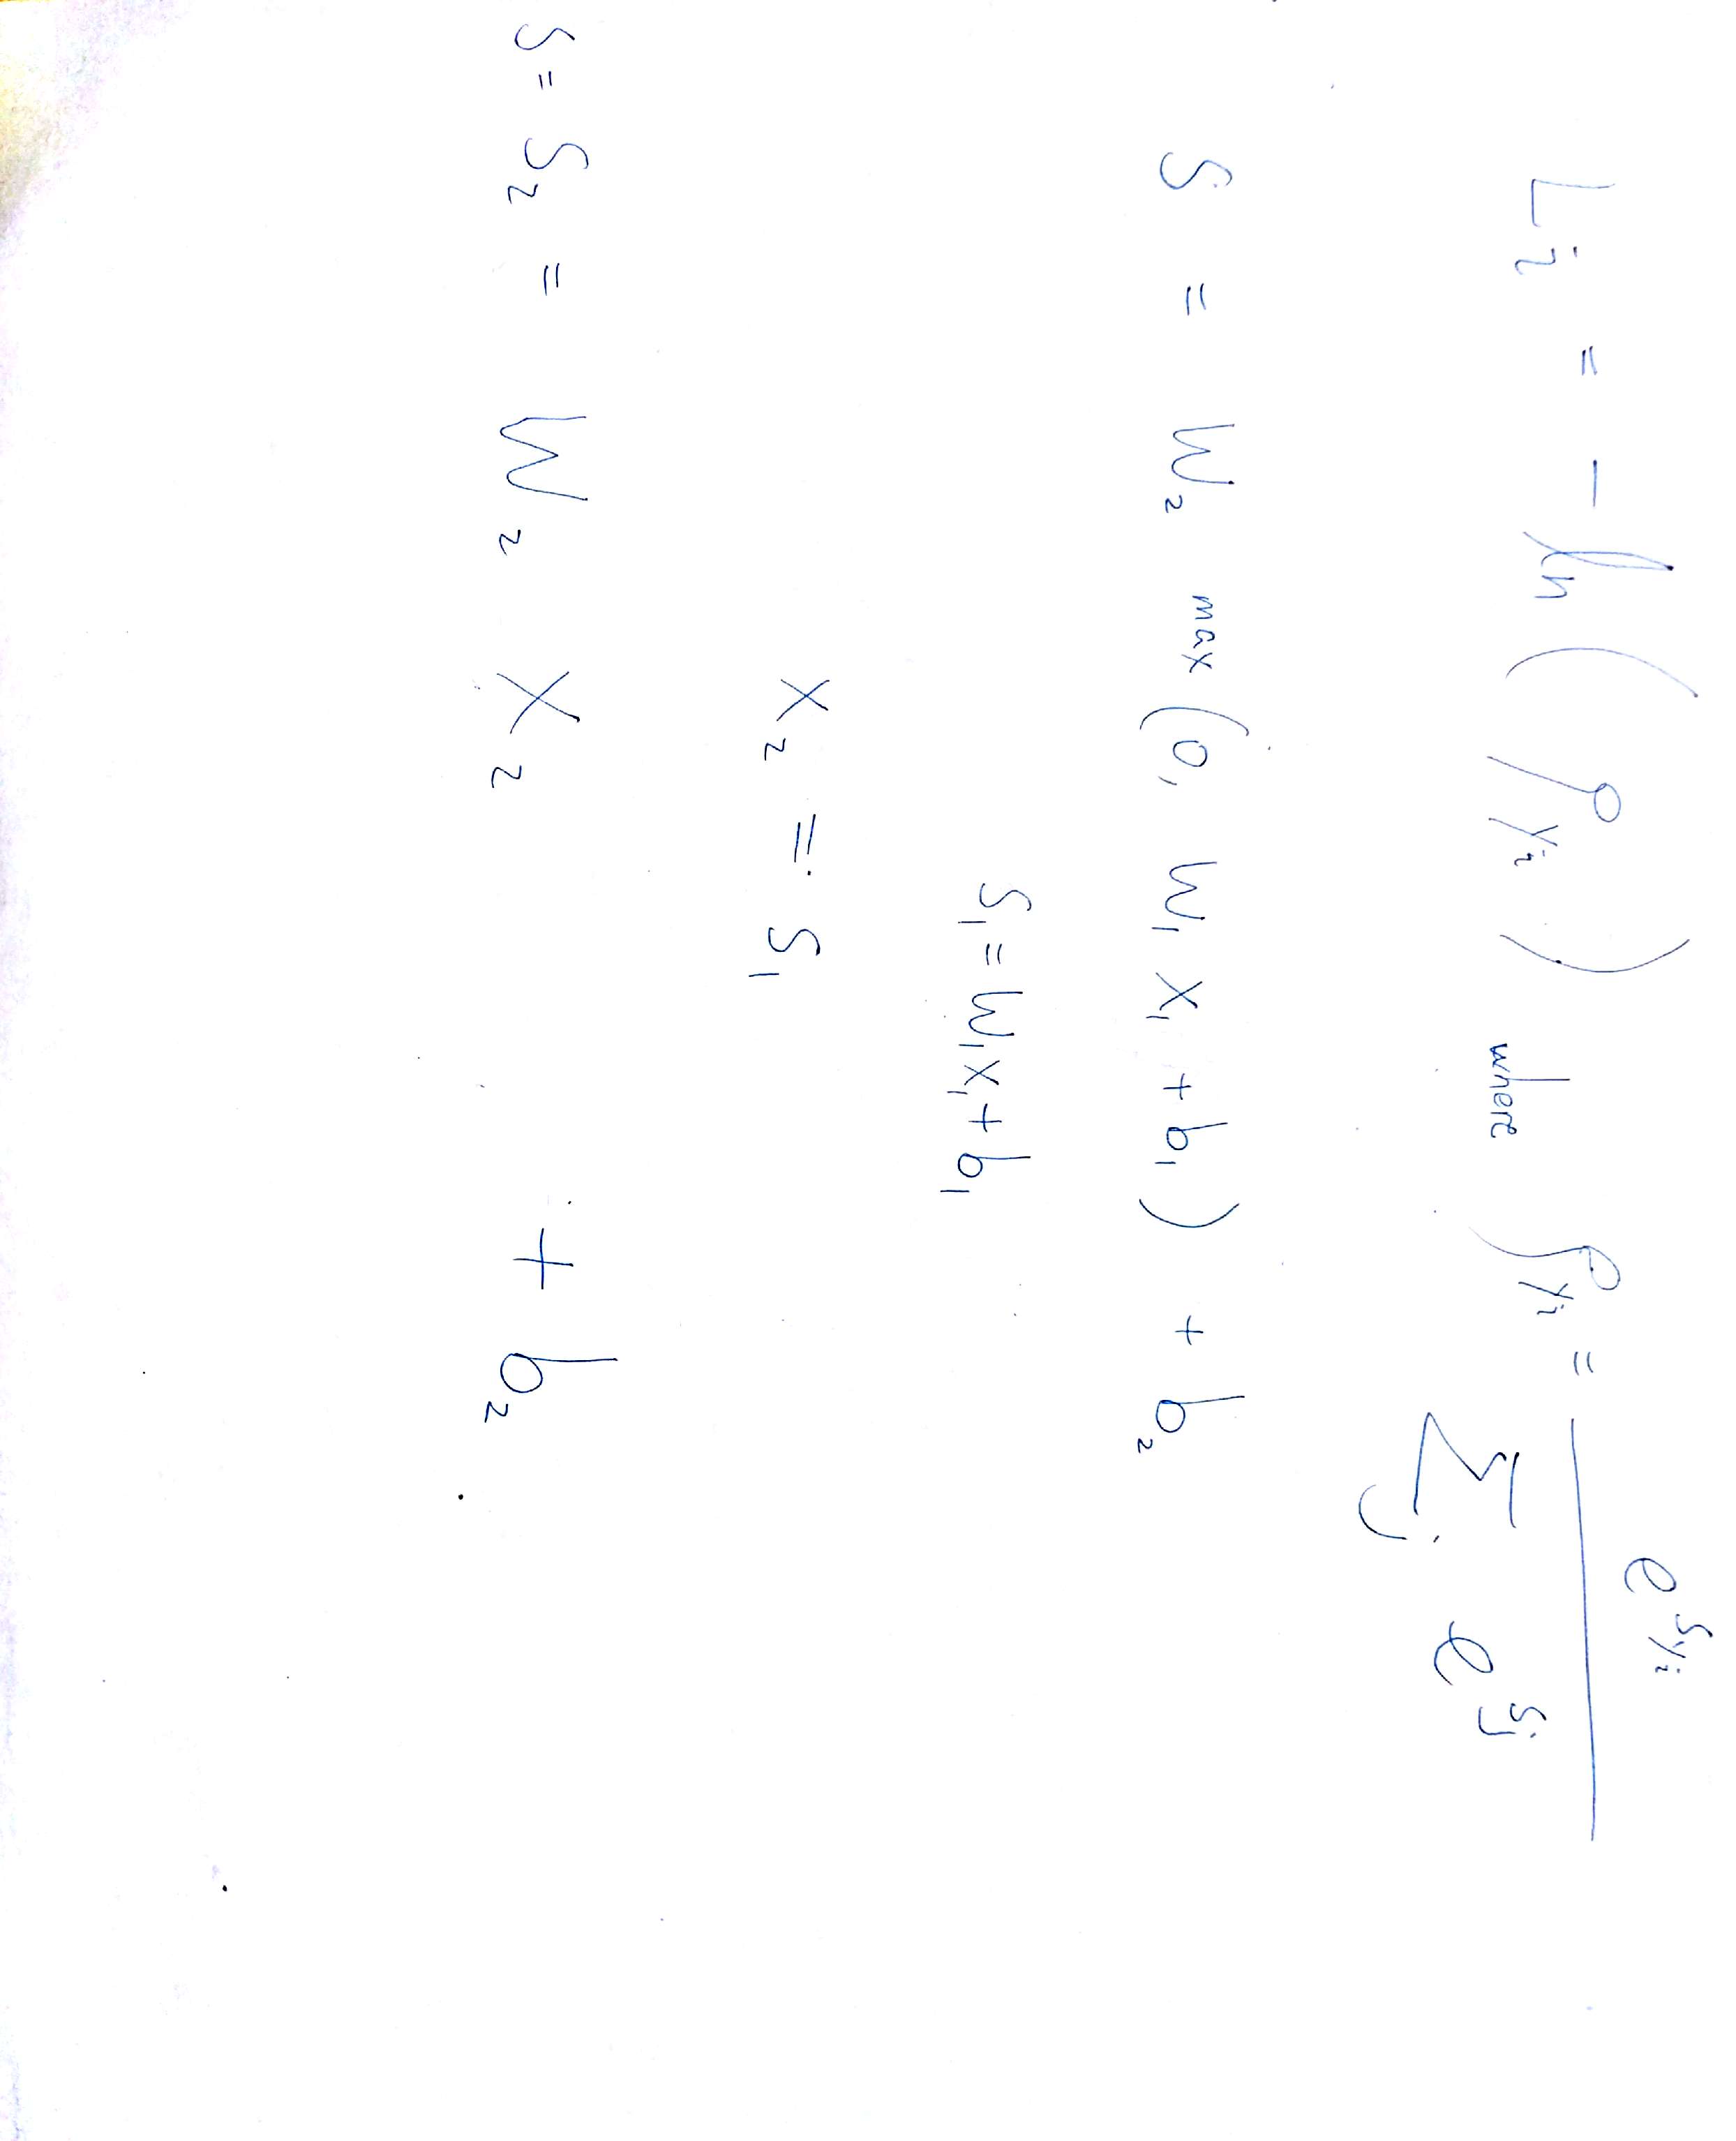 L_i = - ln ( p_{y_i} ) where p_{y_i} = e^{s_{y_i}} / Σ_j e^{s_j}
S = W_2 max (0, W_1 X_1 + b_1) + b_2
S_1 = W_1 X_1 + b_1
X_2 = S_1
S = S_2 = W_2 X_2 + b_2